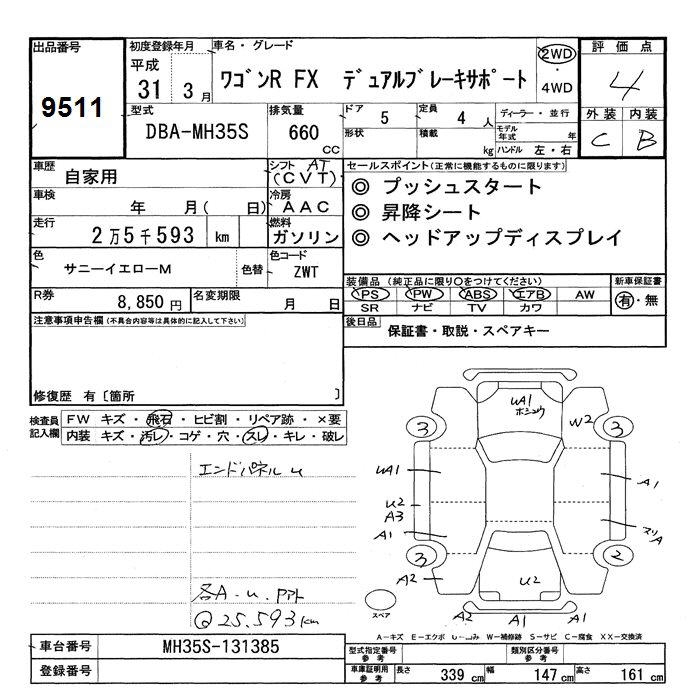 出品番号 初度登録年月 車名・グレード 評価点
9511 平成 31 3月 ワゴンR FX デュアルブレーキサポート 2WD・4WD 4
型式 排気量 ドア 5 定員 4人 ディーラー・並行 外装 内装
DBA-MH35S 660 CC 形状 積載 kg モデル年式 年 ハンドル 左・右 C B
車歴 自家用 シフト AT (CVT) セールスポイント(正常に機能するものに限ります)
車検 年 月( 日) 冷房 AAC ◎ プッシュスタート
◎ 昇降シート
走行 2万5千593 km 燃料 ガソリン ◎ ヘッドアップディスプレイ
色 サニーイエローM 色替 色コード ZWT
装備品 (純正品に限り○をつけてください) 新車保証書
R券 8,850円 名変期限 月 日 PS PW ABS エアB AW 有・無
SR ナビ TV カワ
注意事項申告欄 (不具合内容等は具体的に記入して下さい) 後日品 保証書・取説・スペアキー
修復歴 有〔箇所 〕
検査員記入欄 FW キズ・飛石・ヒビ割・リペア跡・×要
内装 キズ・汚レ・コゲ・穴・スレ・キレ・破レ
UA1
W2
3 3
エンドパネルU
UA1 A1
U2
A3
A1 スリA
3 2
A2 U2
各A.U.アト
Q25.593km
スペア
A2 A1 A1
A-キズ E-エクボ U-凹み W-補修跡 S-サビ C-腐食 XX-交換済
車台番号 MH35S-131385 型式指定番号 参考 類別区分番号 参考
登録番号 車庫証明用 参考 長さ 339 cm 幅 147 cm 高さ 161 cm